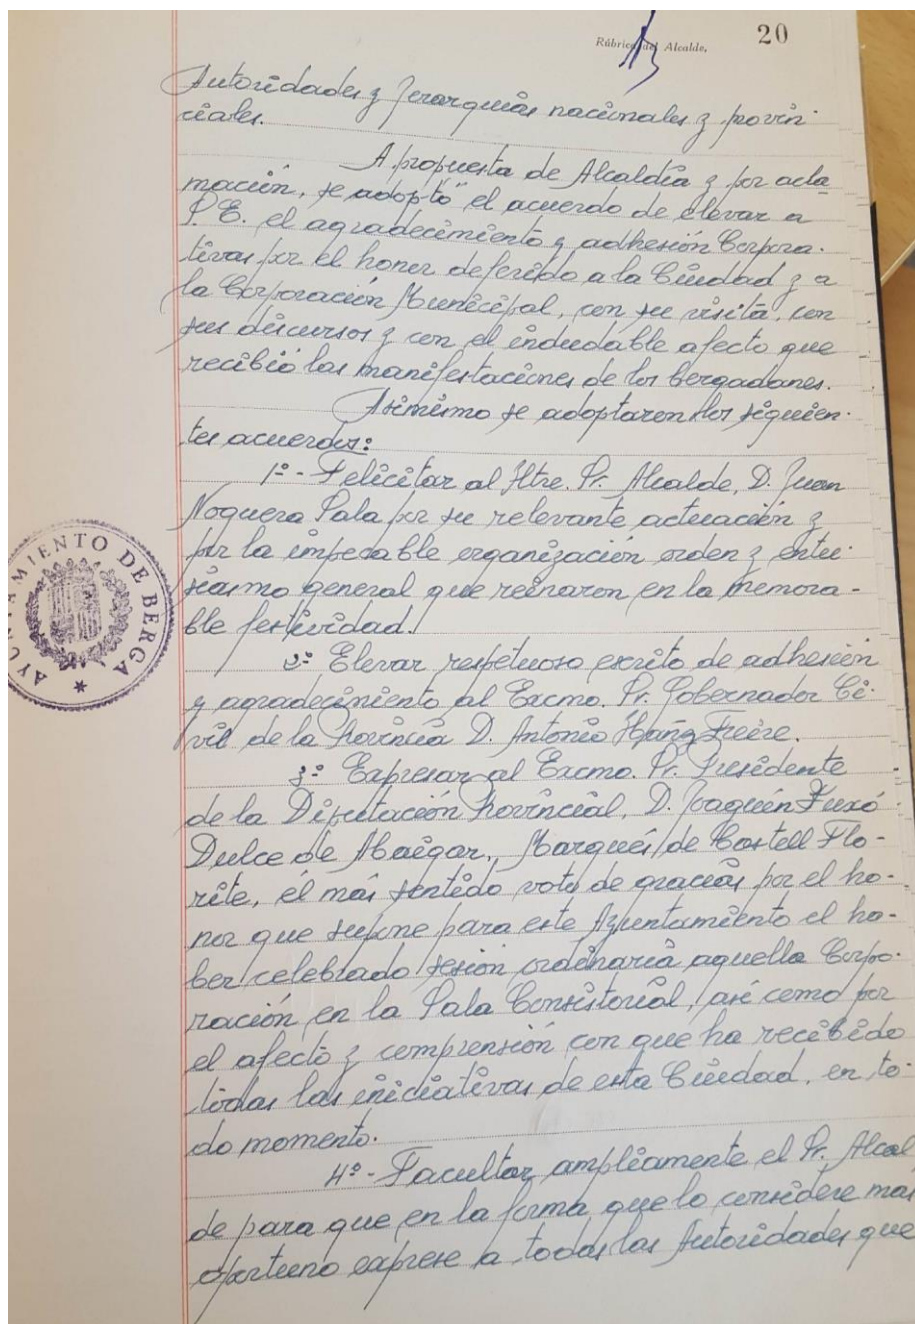 Rúbrica del Alcalde,
20
Autoridades y Jerarquías nacionales y provin-
ciales.
A propuesta de Alcaldía y por acla
mación, se adoptó el acuerdo de elevar a
S.E. el agradecimiento y adhesión Corpora-
tivas por el honor deferido a la Ciudad y a
la Corporación Municipal, con su visita, con
sus discursos y con el indudable afecto que
recibió las manifestaciones de los bergadanes.
Asimismo se adoptaron los siguien-
tes acuerdos:
1º- Felicitar al Iltre. Sr. Alcalde, D. Juan
Noguera Sala por su relevante actuación y
por la impecable organización orden y entu-
siasmo general que reinaron en la memora-
ble festividad.
2º Elevar respetuoso escrito de adhesión
y agradecimiento al Excmo. Sr. Gobernador Ci-
vil de la Provincia D. Antonio Freire.
3º Expresar al Excmo. Sr. Presidente
de la Diputación Provincial, D. Joaquín Buxó
Dulce de Abaigar, Marqués de Castell Flo-
rite, el más sentido voto de gracias por el ho-
nor que supone para este Ayuntamiento el ha-
ber celebrado sesión ordinaria aquella Corpo-
ración en la Sala Consistorial, así como por
el afecto y comprensión con que ha recibido
todas las iniciativas de esta Ciudad, en to-
do momento.
4º- Facultar ampliamente el Sr. Alcal
de para que en la forma que lo considere mas
oportuno exprese a todas las Autoridades que
AYUNTAMIENTO DE BERGA